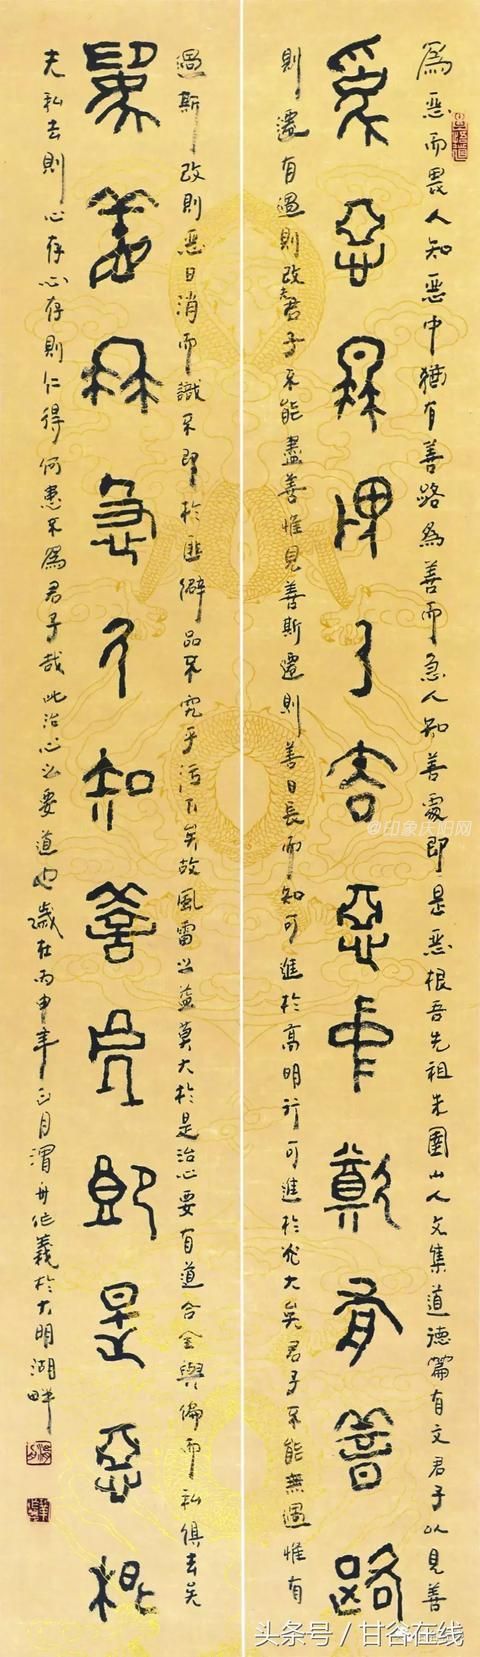 爲惡而畏人知惡中猶有善路爲善而急人知善處即是惡根吾先祖朱圉山人文集道德篇有文君子以見善
爲惡而畏人知惡中猶有善路
則遷有過則改君子不能盡善惟見善斯遷則善日長而知可進於高明行可進於光大矣君子不能無過惟有
過斯改則惡日消而識不即於匪僻品不究乎污下矣故風雷之益莫大於是治心要有道合與偏而私俱去矣
爲善而急人知善處即是惡根
夫私去則心存心存則仁得何患不爲君子哉此治心之要道也歲在丙申年正月渭舟作義於大明湖畔
@印象庆阳网
头条号 / 甘谷在线